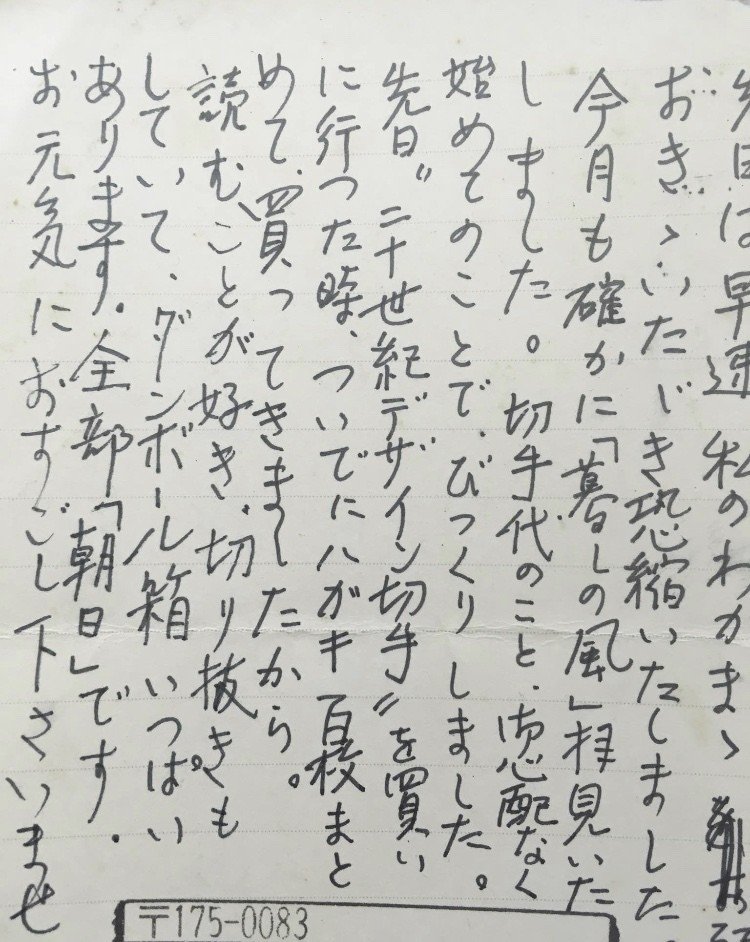 先日は早速 私のわかまゝ
おきゝいたゞき恐縮いたしました
今月も確かに「暮しの風」拝見いた
しました。切手代のこと、御心配なく
始めてのことで、びっくりしました。
先日〝二十世紀デザイン切手〟を買い
に行った時、ついでにハガキ百枚まと
めて、買ってきましたから。
読むことが好き、切り抜きも
していて、ダンボール箱いっぱい
あります。全部「朝日」です.
お元気におすごし下さいませ
〒175-0083